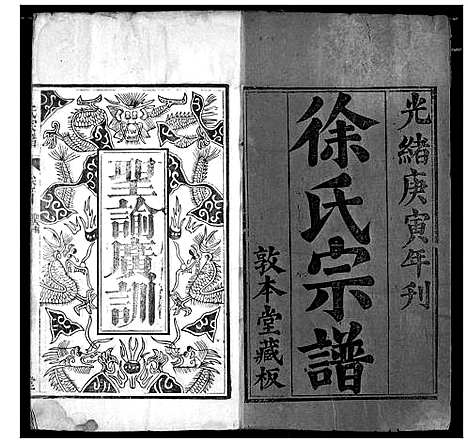 光緒庚寅年刋
徐氏宗譜
敦本堂藏板
聖諭廣訓